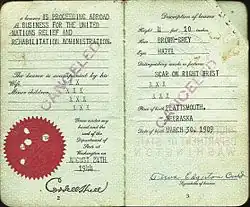 IS PROCEEDING ABROAD
ON BUSINESS FOR THE UNITED
NATIONS RELIEF AND
REHABILITATION ADMINISTRATION.
The bearer is accompanied by his
Wife,
Minor children,
CANCELED
Given under my
hand and the
seal of the
Department of
State at
Washington
AUGUST 24TH
1944
Cordell Hull
2
Description of bearer
Height feet 10 inches
Hair BROWN-GREY
Eyes HAZEL
Distinguishing marks or features
SCAR ON RIGHT WRIST
CANCELED
Place of birth PLATTSMOUTH,
NEBRASKA
Date of birth MARCH 30, 1909
Signature of bearer
3